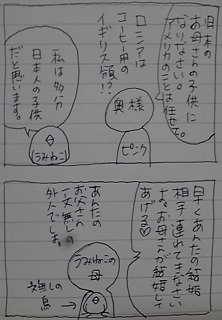 日本の
お母さんの子供に
なりなさい。
アメリカのことは任せて。
ロニアは
コーヒー用の
イギリス領!?
奥様
ピンク
私は多分
日本人の子供
だと思います。
うみねこ
早くあんたの結婚
相手連れてきなさい
よ。お母さんが結婚して
あげる♡
あんたの
お父さん
一文無しの
外人でしょ。
うみねこの
母
文無しの
鳥